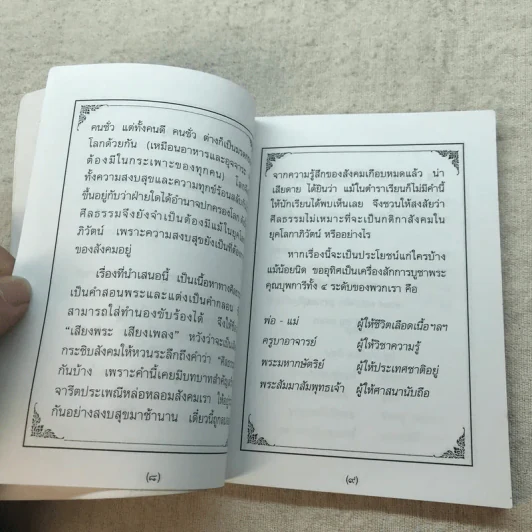 คนชั่ว แต่ทั้งคนดี คนชั่ว ต่างก็เป็น
โลกด้วยกัน (เหมือนอาหารและอุจจาระ
ต้องมีในกระเพาะของทุกคน)
ทั้งความสงบสุขและความทุกข์ร้อน
ขึ้นอยู่กับว่าฝ่ายใดได้อำนาจปกครองโลก
ศีลธรรมจึงยังจำเป็นต้องมีแม้ในยุค
ภิวัตน์ เพราะความสงบสุขยังเป็นที่
ของสังคมอยู่
เรื่องที่นำเสนอนี้ เป็นเนื้อหาทาง
เป็นคำสอนพระและแต่งเป็นคำกลอน
สามารถใส่ทำนองขับร้องได้ จึงให้
“เสียงพระ เสียงเพลง” หวังว่าจะเป็น
กระซิบสังคมให้หวนระลึกถึงคำว่า
กันบ้าง เพราะคำนี้เคยมีบทบาทสำคัญ
จารีตประเพณีหล่อหลอมสังคมเรา
กันอย่างสงบสุขมาช้านาน เดี๋ยวนี้ถูก
(๘)
จากความรู้สึกของสังคมเกือบหมดแล้ว น่า
เสียดาย ได้ยินว่า แม้ในตำราเรียนก็ไม่มีคำนี้
ให้นักเรียนได้พบเห็นเลย จึงชวนให้สงสัยว่า
ศีลธรรมไม่เหมาะที่จะเป็นกติกาสังคมใน
ยุคโลกาภิวัตน์ หรืออย่างไร
หากเรื่องนี้จะเป็นประโยชน์แก่ใครบ้าง
แม้น้อยนิด ขออุทิศเป็นเครื่องสักการบูชาพระ
คุณบุพการีทั้ง ๔ ระดับของพวกเรา คือ
พ่อ - แม่ ผู้ให้ชีวิตเลือดเนื้อฯลฯ
ครูบาอาจารย์ ผู้ให้วิชาความรู้
พระมหากษัตริย์ ผู้ให้ประเทศชาติอยู่
พระสัมมาสัมพุทธเจ้า ผู้ให้ศาสนานับถือ
(๙)